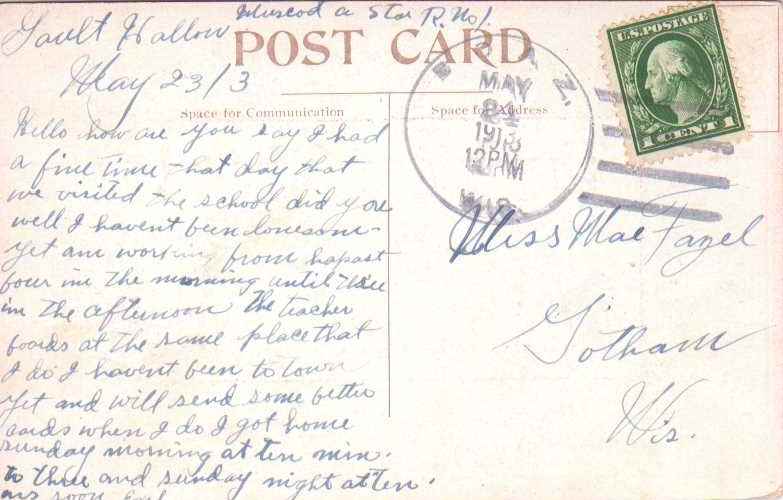 Muscoda Star R. No 1.
Gault Hallow
May 23/3
POST CARD
Space for Communication
Space for Address
U.S. POSTAGE
1 CENT 1
MAY
1913
12 PM
WIS.
Hello how are you say I had
a fine time that day that
we visited the school did you
well I havent been lonesome
yet am working from hapast
four in the morning until three
in the afternoon the teacher
boards at the same place that
I do I havent been to town
yet and will send some better
cards when I do I got home
sunday morning at ten min.
to three and sunday night at ten.
ans soon
Miss Mae Fazel
Gotham
Wis.